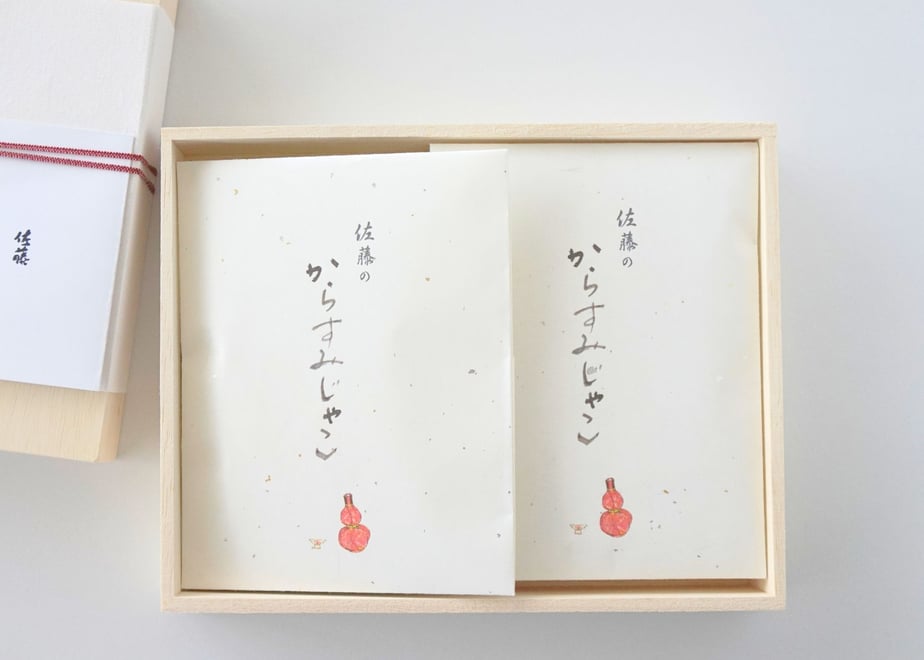 佐藤
佐藤の
からすみじゃこ
佐藤の
からすみじゃこ